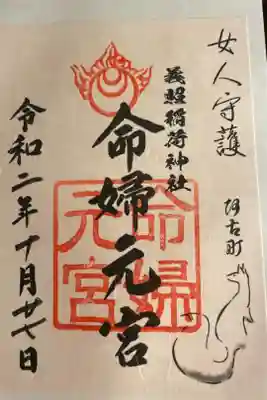 女人守護
阿古町
義照稲荷神社
命婦元宮
命婦元宮
令和二年十月廿七日